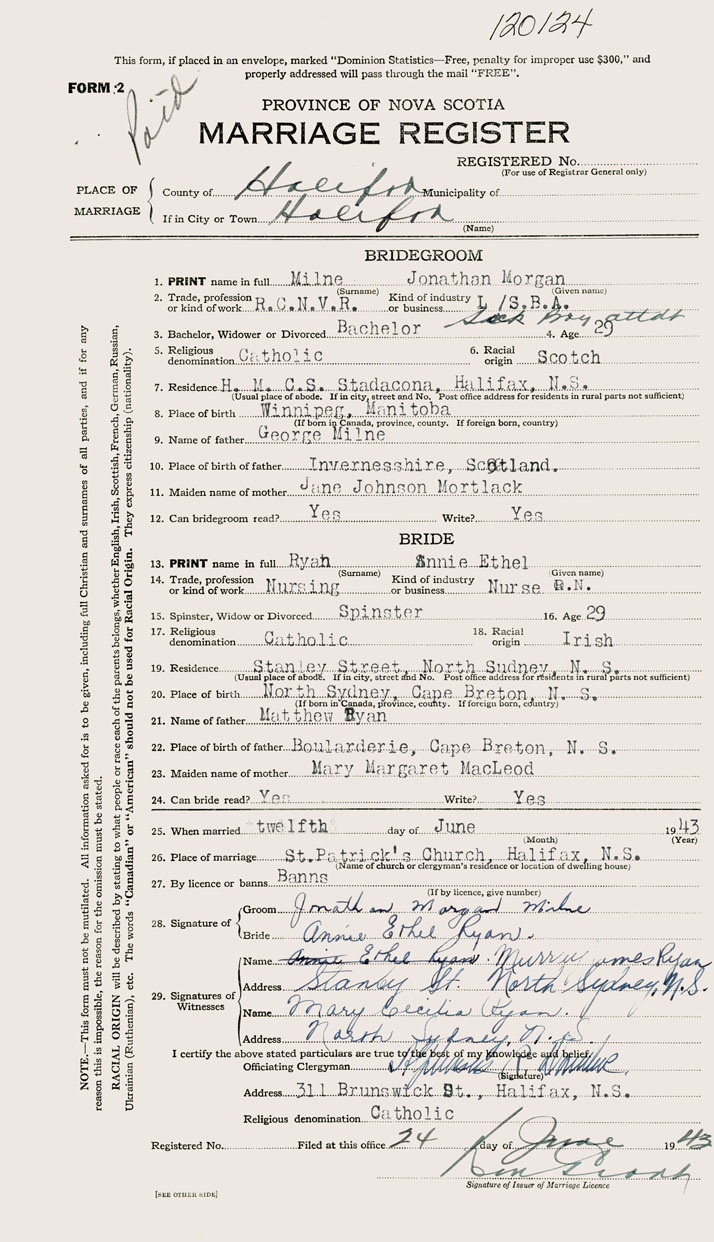 120124
This form, if placed in an envelope, marked "Dominion Statistics—Free, penalty for improper use $300," and
properly addressed will pass through the mail "FREE".
FORM 2
Paid
PROVINCE OF NOVA SCOTIA
MARRIAGE REGISTER
REGISTERED No.
(For use of Registrar General only)
PLACE OF MARRIAGE
County of Halifax Municipality of
If in City or Town Halifax
(Name)
BRIDEGROOM
1. PRINT name in full Milne Jonathan Morgan
(Surname) (Given name)
2. Trade, profession or kind of work R.C.N.V.R. Kind of industry or business L/S.B.A.
Sick Bay attdt
3. Bachelor, Widower or Divorced Bachelor 4. Age 29
5. Religious denomination Catholic 6. Racial origin Scotch
7. Residence H. M. C.S. Stadacona, Halifax, N.S.
(Usual place of abode. If in city, street and No. Post office address for residents in rural parts not sufficient)
8. Place of birth Winnipeg, Manitoba
(If born in Canada, province, county. If foreign born, country)
9. Name of father George Milne
10. Place of birth of father Invernesshire, Scotland.
11. Maiden name of mother Jane Johnson Mortlack
12. Can bridegroom read? Yes Write? Yes
BRIDE
13. PRINT name in full Ryan Annie Ethel
(Surname) (Given name)
14. Trade, profession or kind of work Nursing Kind of industry or business Nurse R.N.
15. Spinster, Widow or Divorced Spinster 16. Age 29
17. Religious denomination Catholic 18. Racial origin Irish
19. Residence Stanley Street, North Sudney, N. S.
(Usual place of abode. If in city, street and No. Post office address for residents in rural parts not sufficient)
20. Place of birth North Sydney, Cape Breton, N. S.
(If born in Canada, province, county. If foreign born, country)
21. Name of father Matthew Ryan
22. Place of birth of father Boularderie, Cape Breton, N. S.
23. Maiden name of mother Mary Margaret MacLeod
24. Can bride read? Yes Write? Yes
25. When married twelfth day of June 1943
(Month) (Year)
26. Place of marriage St.Patrick's Church, Halifax, N.S.
(Name of church or clergyman's residence or location of dwelling house)
27. By licence or banns Banns
(If by licence, give number)
28. Signature of
Groom Jonathan Morgan Milne
Bride Annie Ethel Ryan.
29. Signatures of Witnesses
Name Annie Ethel Ryan. Murray James Ryan
Address Stanley St. North Sydney, N.S.
Name Mary Cecilia Ryan.
Address North Sydney, N.S.
I certify the above stated particulars are true to the best of my knowledge and belief.
Officiating Clergyman
(Signature)
Address 311 Brunswick St., Halifax, N.S.
Religious denomination Catholic
Registered No. Filed at this office 24 day of June 1943
Signature of Issuer of Marriage Licence
[SEE OTHER SIDE]
NOTE.—This form must not be mutilated. All information asked for is to be given, including full Christian and surnames of all parties, and if for any
reason this is impossible, the reason for the omission must be stated.
RACIAL ORIGIN will be described by stating to what people or race each of the parents belongs, whether English, Irish, Scottish, French, German, Russian,
Ukrainian (Ruthenian), etc. The words "Canadian" or "American" should not be used for Racial Origin. They express citizenship (nationality).